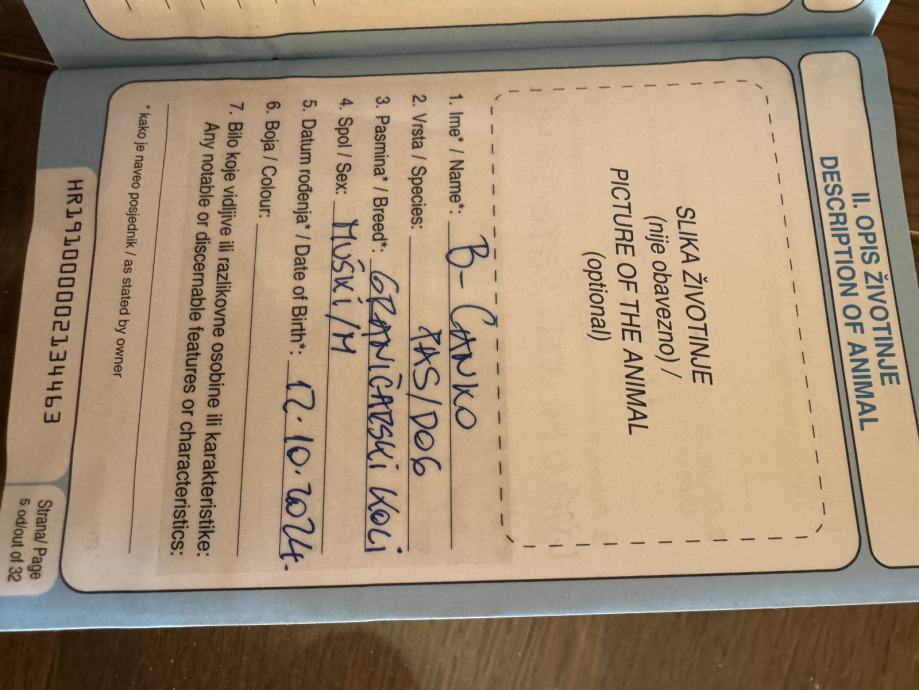 II. OPIS ŽIVOTINJE
DESCRIPTION OF ANIMAL
SLIKA ŽIVOTINJE
(nije obavezno) /
PICTURE OF THE ANIMAL
(optional)
1. Ime* / Name*: B- ČANKO
2. Vrsta / Species: PAS/DOG
3. Pasmina* / Breed*: GRANIČARSKI KOLI
4. Spol / Sex: MUŠKI/M
5. Datum rođenja* / Date of Birth*: 12.10.2024.
6. Boja / Colour:
7. Bilo koje vidljive ili razlikovne osobine ili karakteristike:
Any notable or discernable features or characteristics:
* kako je naveo posjednik / as stated by owner
HR191000002134463
Strana/ Page
5 od/out of 32